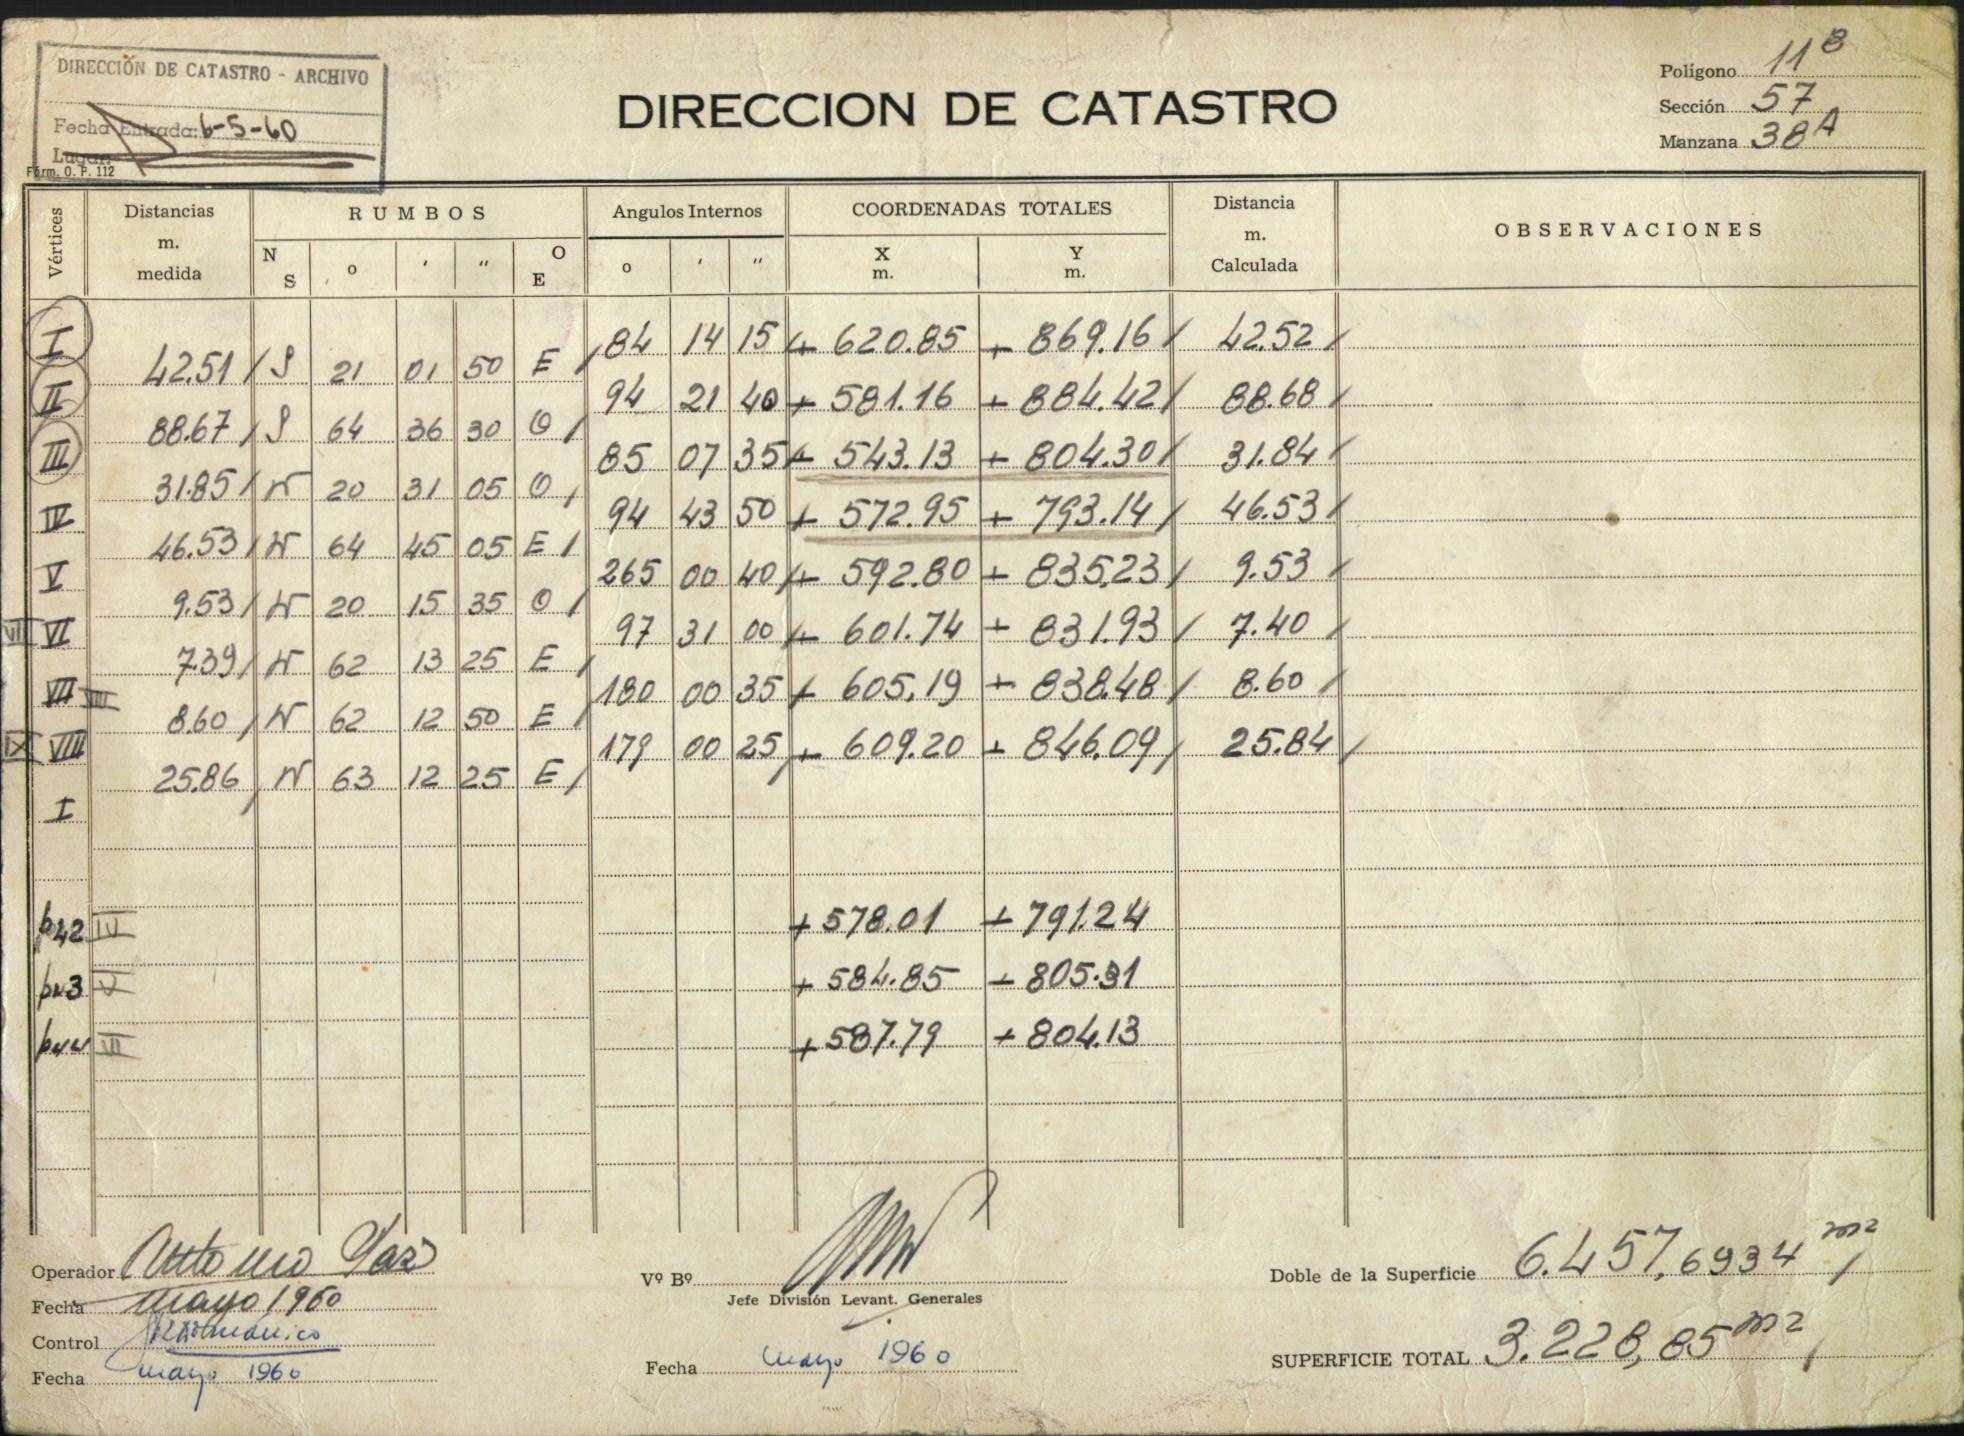 DIRECCIÓN DE CATASTRO - ARCHIVO
Fecha Entrada: 6-5-60
Lugar:
Fórm. O. P. 112
DIRECCION DE CATASTRO
Polígono 11 B
Sección 57
Manzana 38 A
Vértices
Distancias m. medida
RUMBOS
N S
o ' "
O E
Angulos Internos
o ' "
COORDENADAS TOTALES
X m.
Y m.
Distancia m. Calculada
OBSERVACIONES
I 84 14 15 + 620.85 + 869.16 42.52
42.51 S 21 01 50 E
II 94 21 40 + 581.16 + 884.42 88.68
88.67 S 64 36 30 O
III 85 07 35 + 543.13 + 804.30 31.84
31.85 N 20 31 05 O
IV 94 43 50 + 572.95 + 793.14 46.53
46.53 N 64 45 05 E
V 265 00 40 + 592.80 + 835.23 9.53
9.53 N 20 15 35 O
VII VI 97 31 00 + 601.74 + 831.93 7.40
7.39 N 62 13 25 E
VII VIII 180 00 35 + 605.19 + 838.48 8.60
8.60 N 62 12 50 E
IX VIII 179 00 25 + 609.20 + 846.09 25.84
25.86 N 63 12 25 E
I
p42 IV + 578.01 + 791.24
V + 584.85 + 805.31
VI + 587.79 + 804.13
Operador Antonio
Fecha mayo 1960
Control
Fecha mayo 1960
Vº Bº
Jefe División Levant. Generales
Fecha mayo 1960
Doble de la Superficie 6.457,6934 m2
SUPERFICIE TOTAL 3.228,85 m2